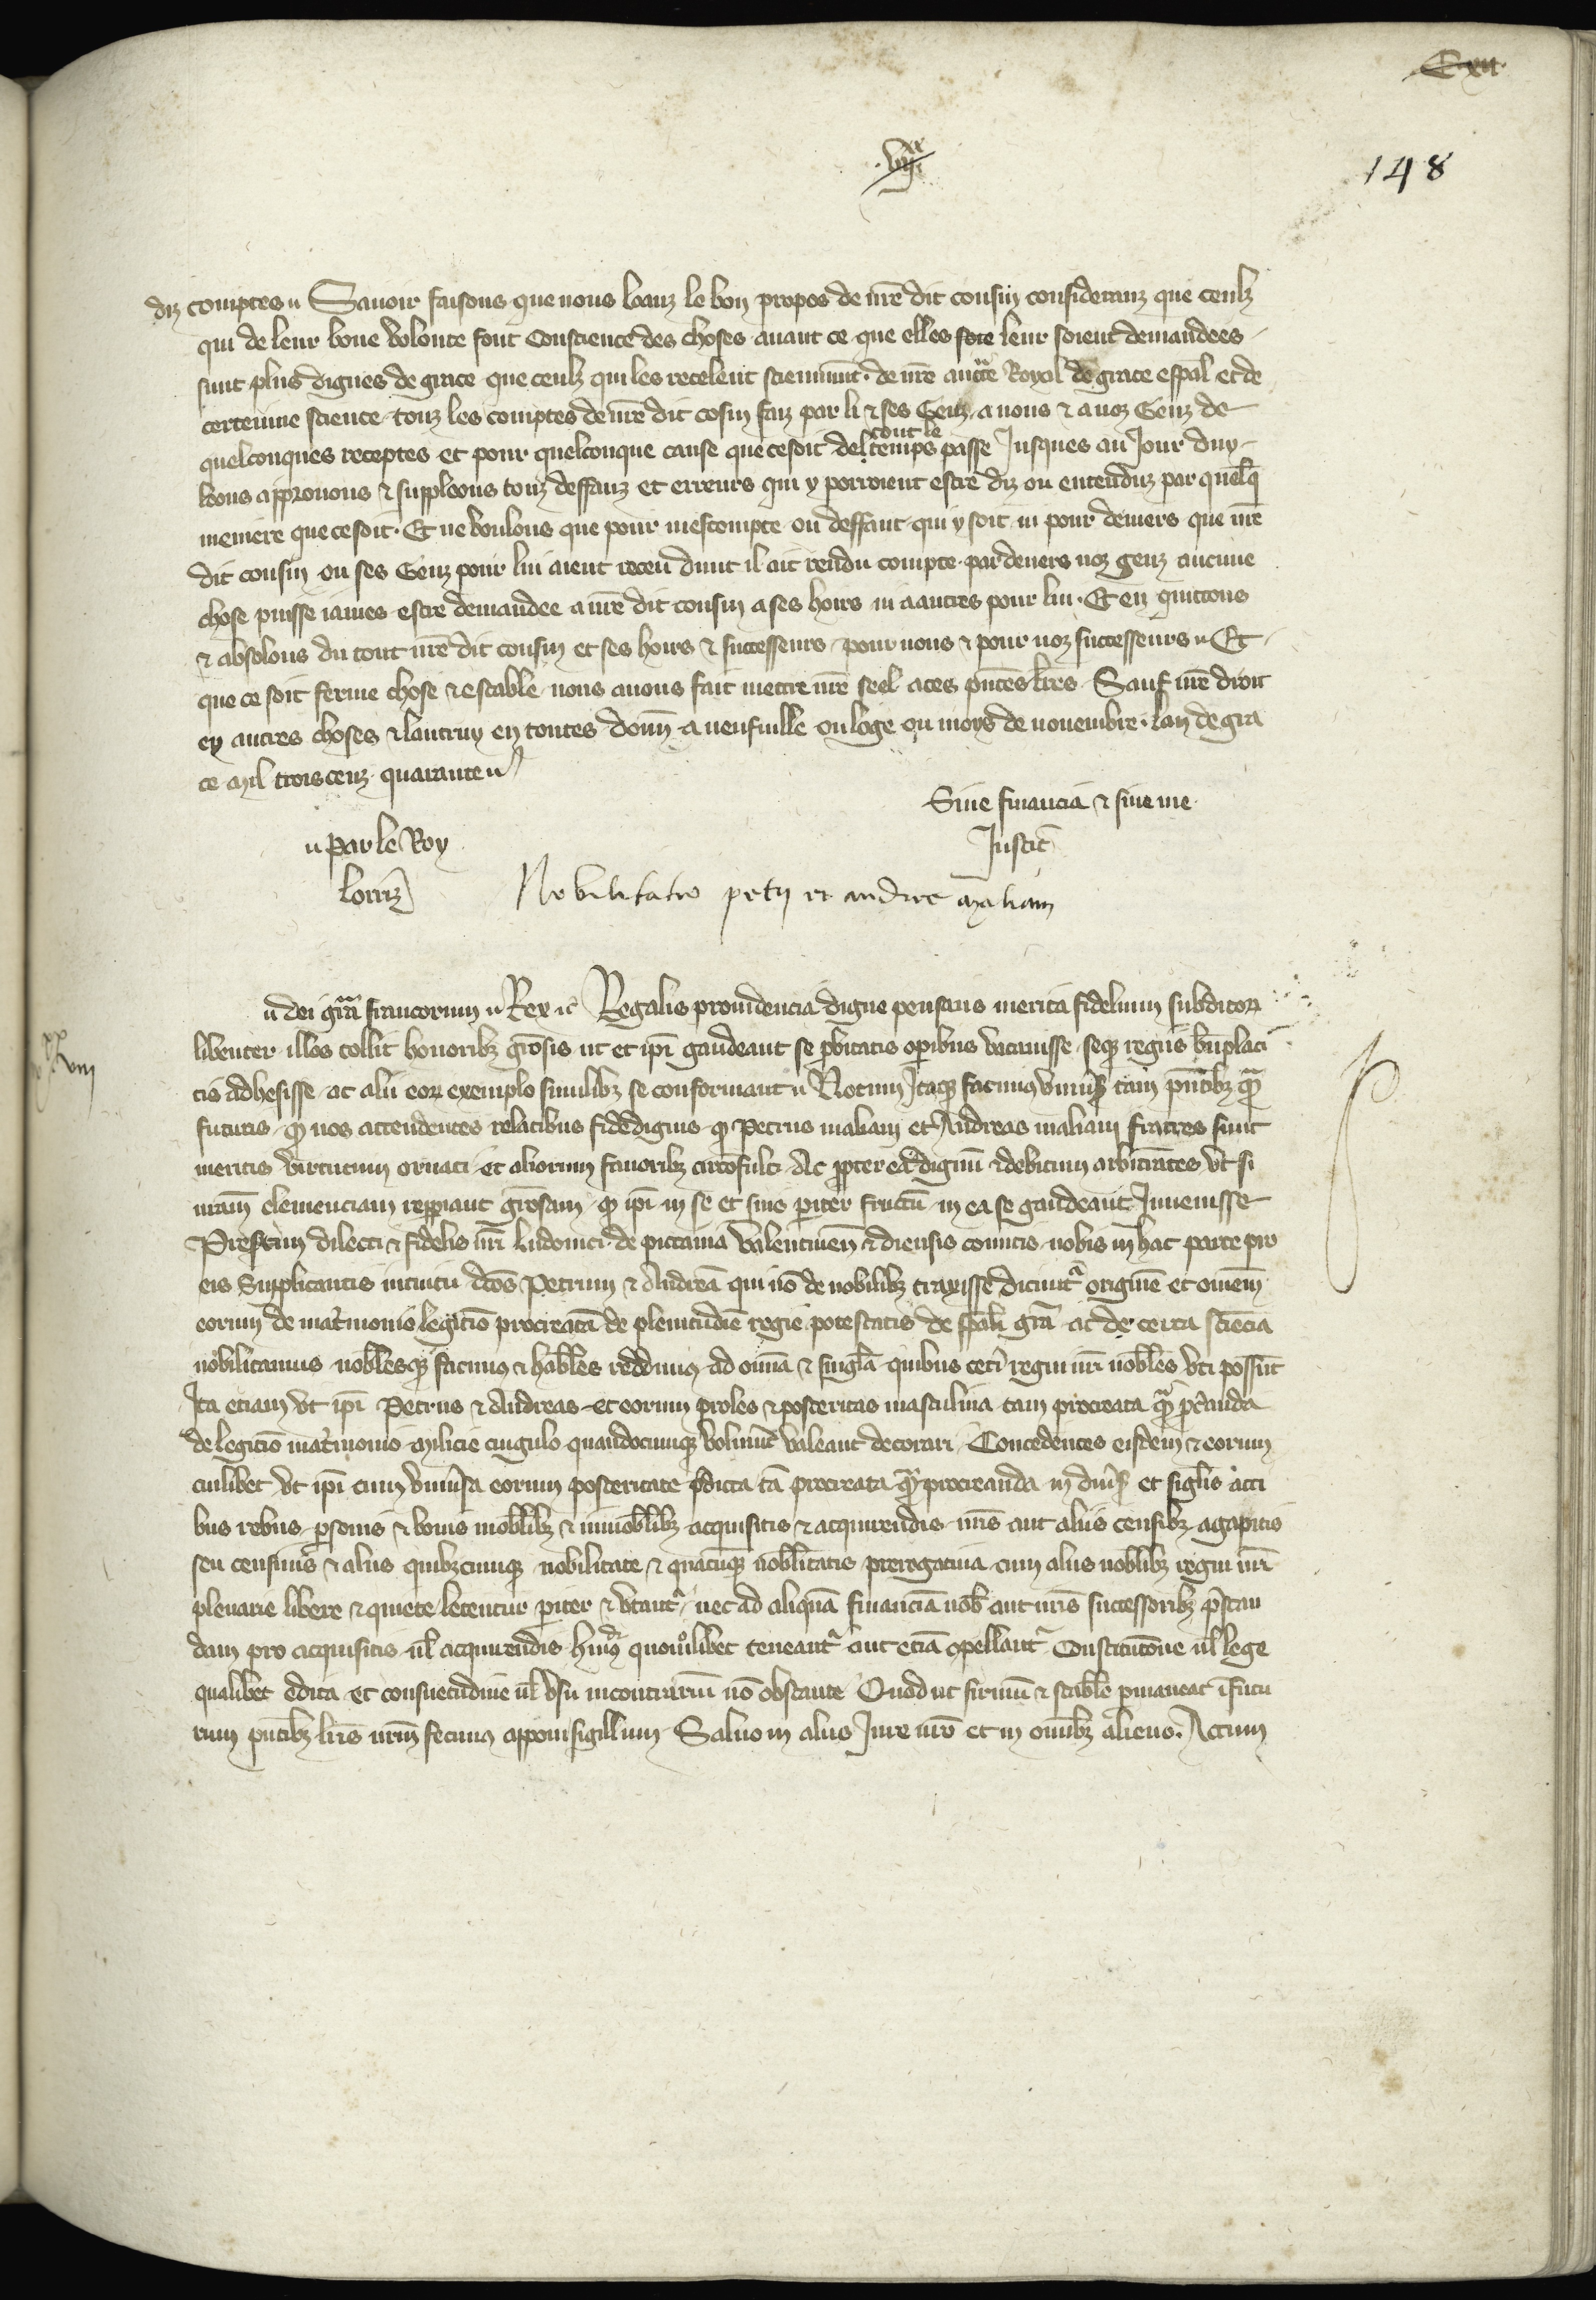 C xii
.vii.xx
148
diz comptes Sauoir faisons que nous loanz le bon propos de nr̃e dit cousin consideranz que ceulz
qui de leur bone volonte font Conscience des choses auant ce que elles soie leur soient demandees
sunt plus dignes de grace que ceulz qui les recelent sciemment. de nr̃e auctẽ Royal de grace esp̃al et de
certeinne science touz les comptes de nr̃e dit cosin faiz par li & ses Genz a nous & a noz Genz de
quelconques receptes et pour quelconque cause que ce soit del tout le temps passe Jusques au Jour duy
loons approuons & suppleons touz deffauz et erreurs qui y porroient estre diz ou entenduz par quelq̃
meniere que ce soit. Et ne voulons que pour mescompte ou deffaut qui y soit ni pour deniers que nr̃e
dit cousin ou ses Genz pour lui aient receu dunt il ait rendu compte par deuers noz genz aucune
chose puisse iames estre demandee a nr̃e dit cousin a ses hoirs ni a autres pour lui. Et en quittons
& absolons du tout nr̃e dit cousin et ses hoirs & successeurs pour nous & pour noz successeurs Et
que ce soit ferme chose & estable nous auons fait mettre nr̃e seel a ces p̃ntes lr̃es Sauf nr̃e droit
en autres choses & lautruy en toutes donñ a neufuille ou loge ou moys de nouembre. lan de gra
ce mil trois cenz quarante
Sine financia & sine me
par le Roy
Justic̃
lorriz
Nobilitatio petri et andree maliani
dei gr̃a francorum Rex &c̃ Regalis prouidencia digne pensans merita fidelium subditor
libenter illos tollit honoribz gr̃osis ut et ip̃i gaudeant se p̃bitatis op̃ibus vacauisse seqz regiis bñplaci
tis adhesisse ac alii eor exemplo similibz se conformant Notum Itaqz facimus vniu̾s tam p̃ntibz q̃
futuris q̾ nos attendentes relatibus fidedignis q̾ Petrus maliani et Andreas maliani fratres sunt
meritis virtutum ornati et aliorum fauoribz circõfulti Ac p̃pterea dignũ & debitum arbitrãtes vt si
nr̃am clemenciam rep̃iant gr̃osam q̾ ip̃i in se et suis p̃iter fructũ in ea se gaudeant Inuenisse
Presertim dilecti & fidelis nr̃i ludouici de pictauia valentineñ & diensis comitis nobis in hac parte pro
eis Supplicantis intuitu dc̃os Petrum & Andreã qui nõ de nobilibz traxisse dicũtᷣ originẽ et om̃em
eorum de mat̾monio legitĩo procreatã de plenitudĩe regie potestatis de sp̃ali gr̃a ac de certa sciẽcia
nobilitamus nobl̃esqz facimus & habl̃es reddimus ad om̃ia & singl̃a quibus cet̾i regni nr̃i nobl̃es vti possũt
Ita etiam vt ip̃i Petrus & Andreas et eorum proles & posteritas masculina tam procreata q̃ p̃creanda
de legitĩo mat̾monio milicie cingulo quandocumqz voluint̾ valeant decorari Concedentes eisdem & eorum
cuilibet vt ip̃i cum vniu̾sa eorum posteritate p̃dicta tã procreata q̃ procreanda in diu̾s et sigl̃is acti
bus rebus p̃sonis & bonis mobl̃ibz & immobl̃ibz acquisitis & acquirendis nr̃is aut aliis censibz agapitis
seu censiuis & aliis quibzcumqz nobilitate & quacũqz nobl̃itatis prerogatiua cum aliis nobl̃ibz regni nr̃i
plenarie libere & quiete letentur p̃iter & vtantᷣ nec ad aliquã financiã nob̃ aut nr̃is successoribz p̃stan
dam pro acquisitis ul̃ acquirendis hui̾ quomõlibet teneantᷣ aut etiã compellantᷣ Constitutõne ul̃ lege
qualibet edita et consuetudine ul̃ vsu in contrariũ nõ obstante Quod ut firmũ & stabl̃e p̃maneat ĩ futu
rum p̃ntibz lr̃is nr̃m fecimus apponi sigillum Saluo in aliis Jure nr̃o et in om̃ibz alieno. Actum